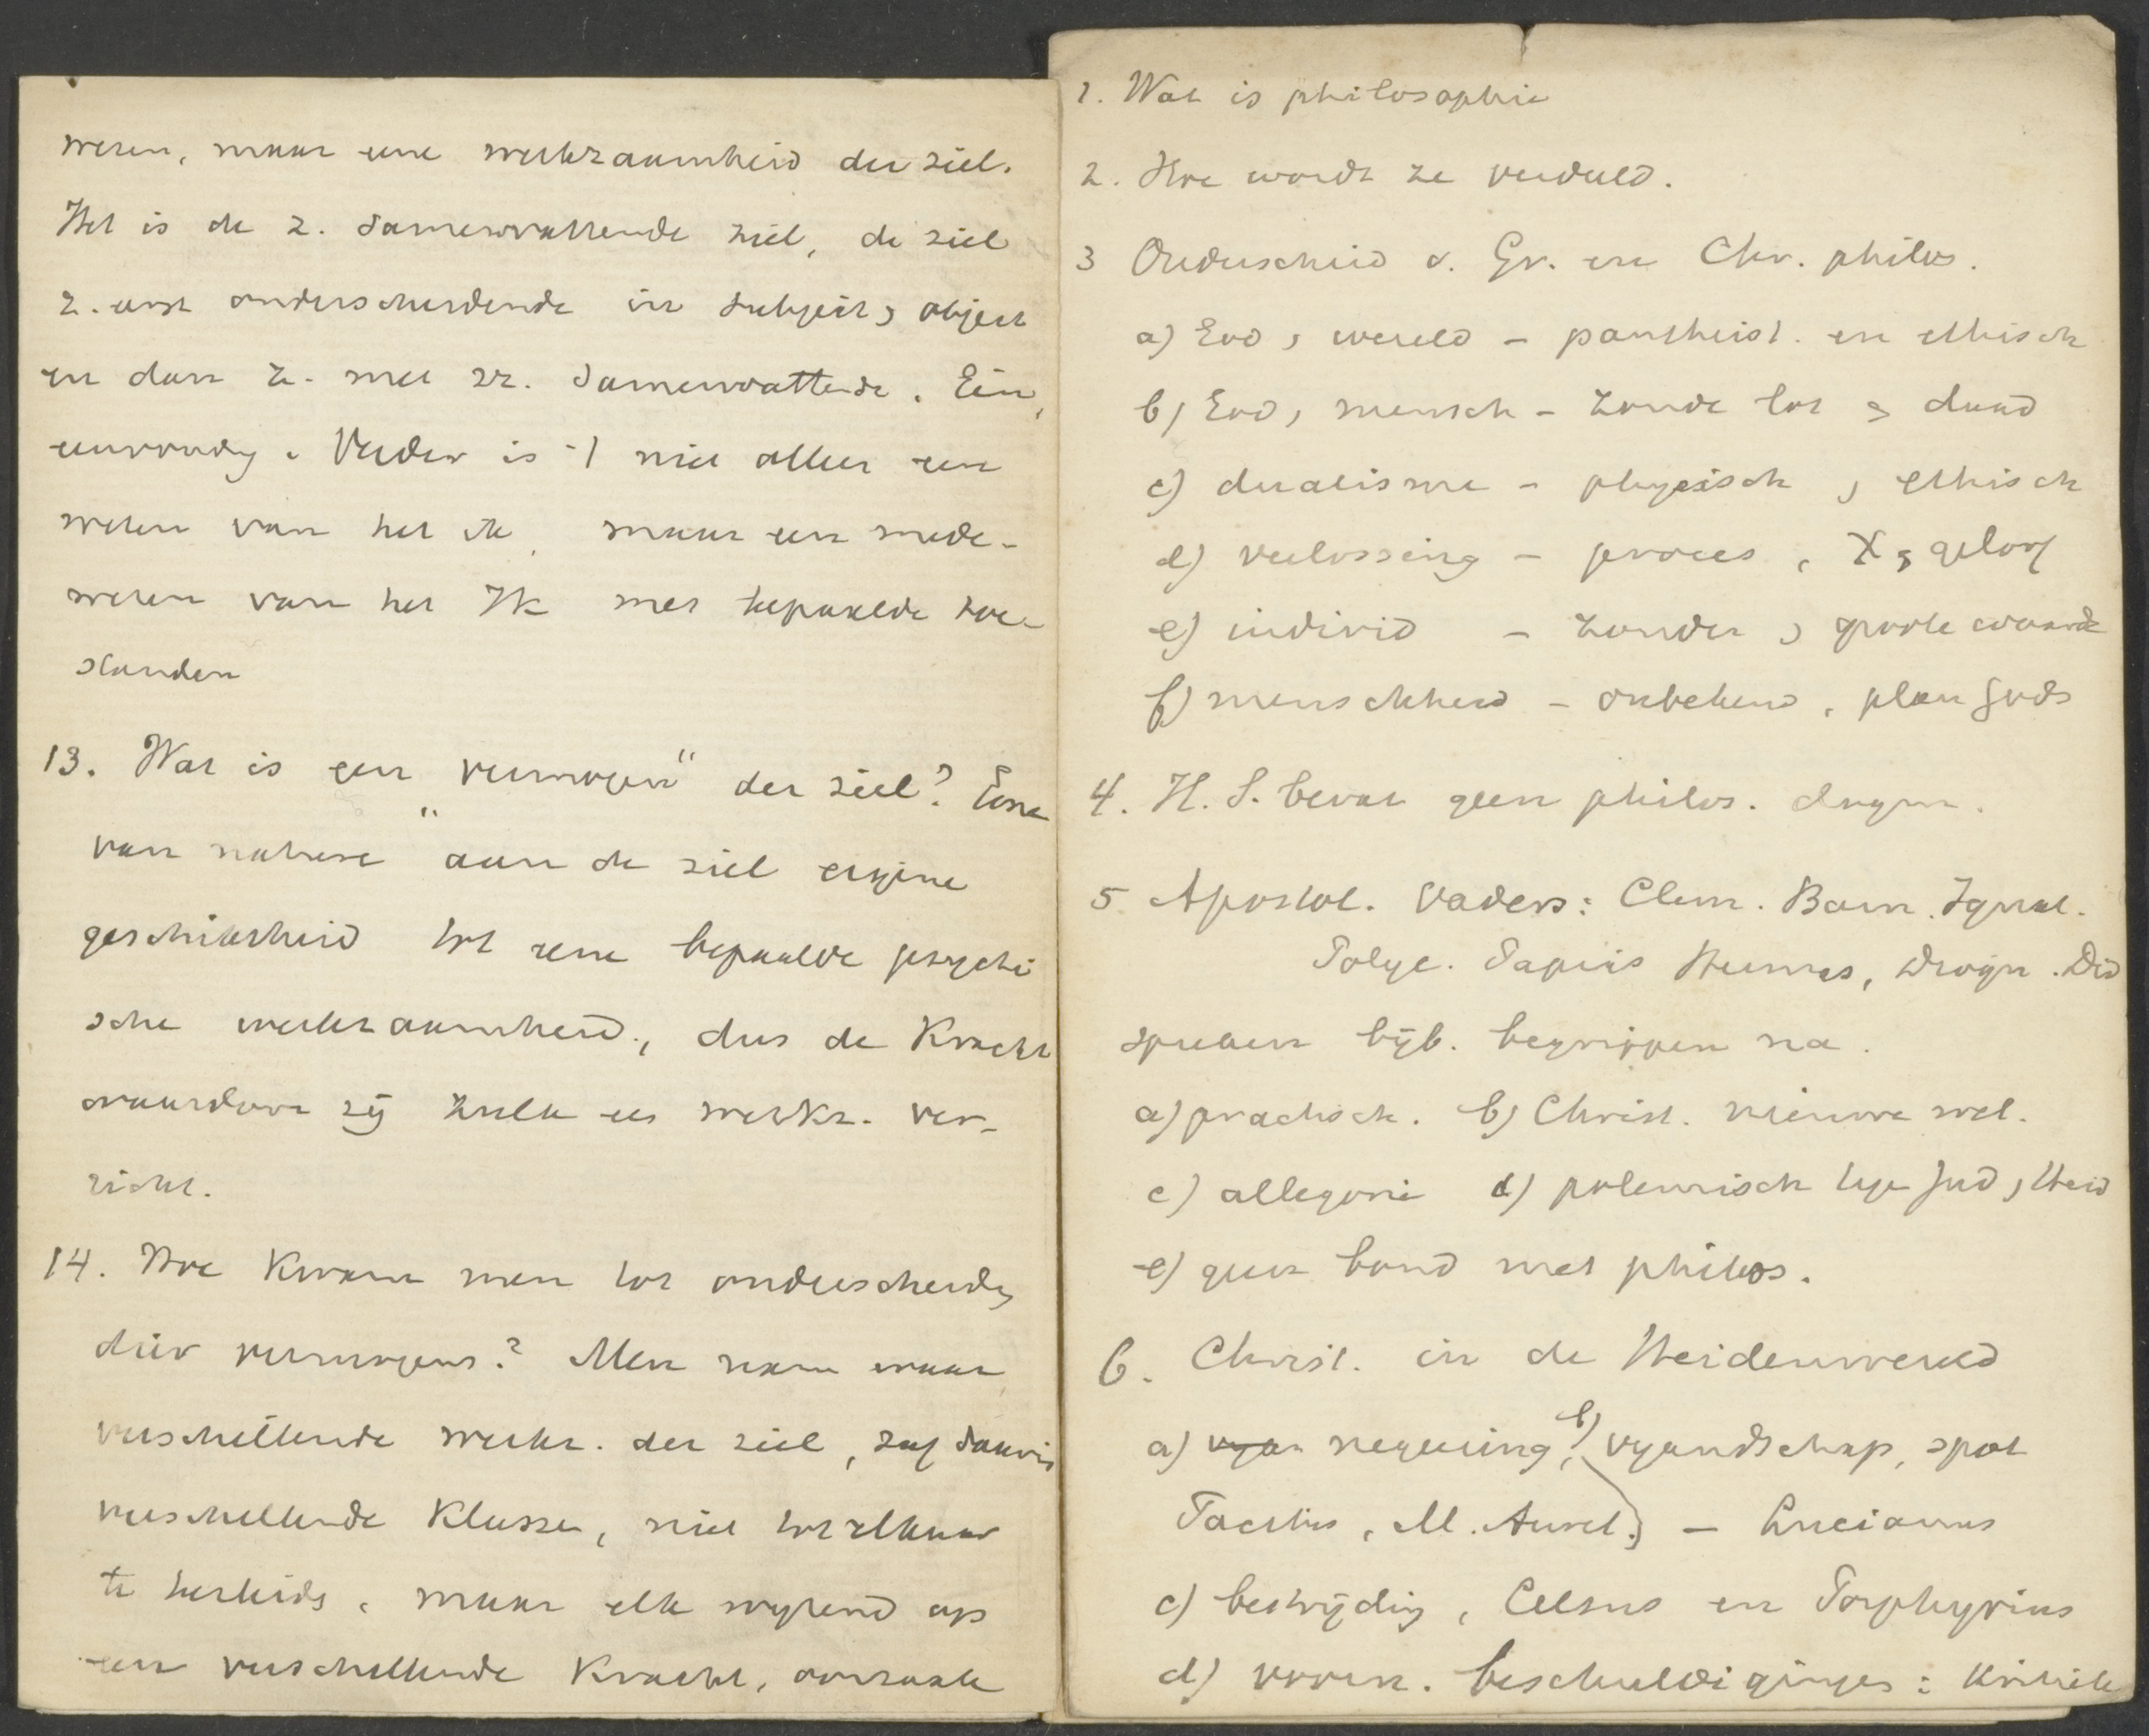 wezen, maar eene werkzaamheid der ziel.
Het is de z. samenvattende ziel, de ziel
z. eerst onderscheidende in subject, object
en dan z. met zz. samenvattende. Één,
eenvoudig. Verder is 't niet alleen een
weten van het ik, maar een mede-
weten van het Ik met bepaalde toe-
standen
13. Wat is een „vermogen" der ziel? Eene
„van nature" aan de ziel eigene
geschiktheid tot eene bepaalde psychi
sche werkzaamheid, dus de Kracht
waardoor zij zulk een werkz. ver-
richt.
14. Hoe Kwam men tot onderscheidg
dier vermogens? Men nam waar
verschillende werkz. der ziel, zag daarin
verschillende Klassen, niet tot elkaar
te herleidg, maar elk wijzend op
een verschillende Kracht, oorzaak
1. Wat is philosophie
2. Hoe wordt ze verdeeld.
3 Onderscheid v. Gr. en Chr. philos.
a) God, wereld - pantheist. en ethisch
b) God, mensch - zonde lot, daad
c) dualisme - physisch, ethisch
d) verlossing - proces, X, geloof
e) individ - zonder, groote waarde
f) menschheid - onbekend, plan Gods
4. H. S. bevat geen philos. dogm.
5. Apostol. Vaders: Clem. Barn. Ignat.
Polyc. Papias Hermas, Diogn. Did
spreken bijb. begrippen na.
a) practisch. b) Christ. nieuwe wet.
c) allegorie d) polemisch tege Jud, Heid
e) geen band met philos.
6. Christ. in de Heidenwereld
a) vyan negeering, b) vyandschap, spot
Tacitus, M. Aurel. - Lucianus
c) bestrijdig, Celsus en Porphyrius
d) voorn. beschuldigingen: Kritiek